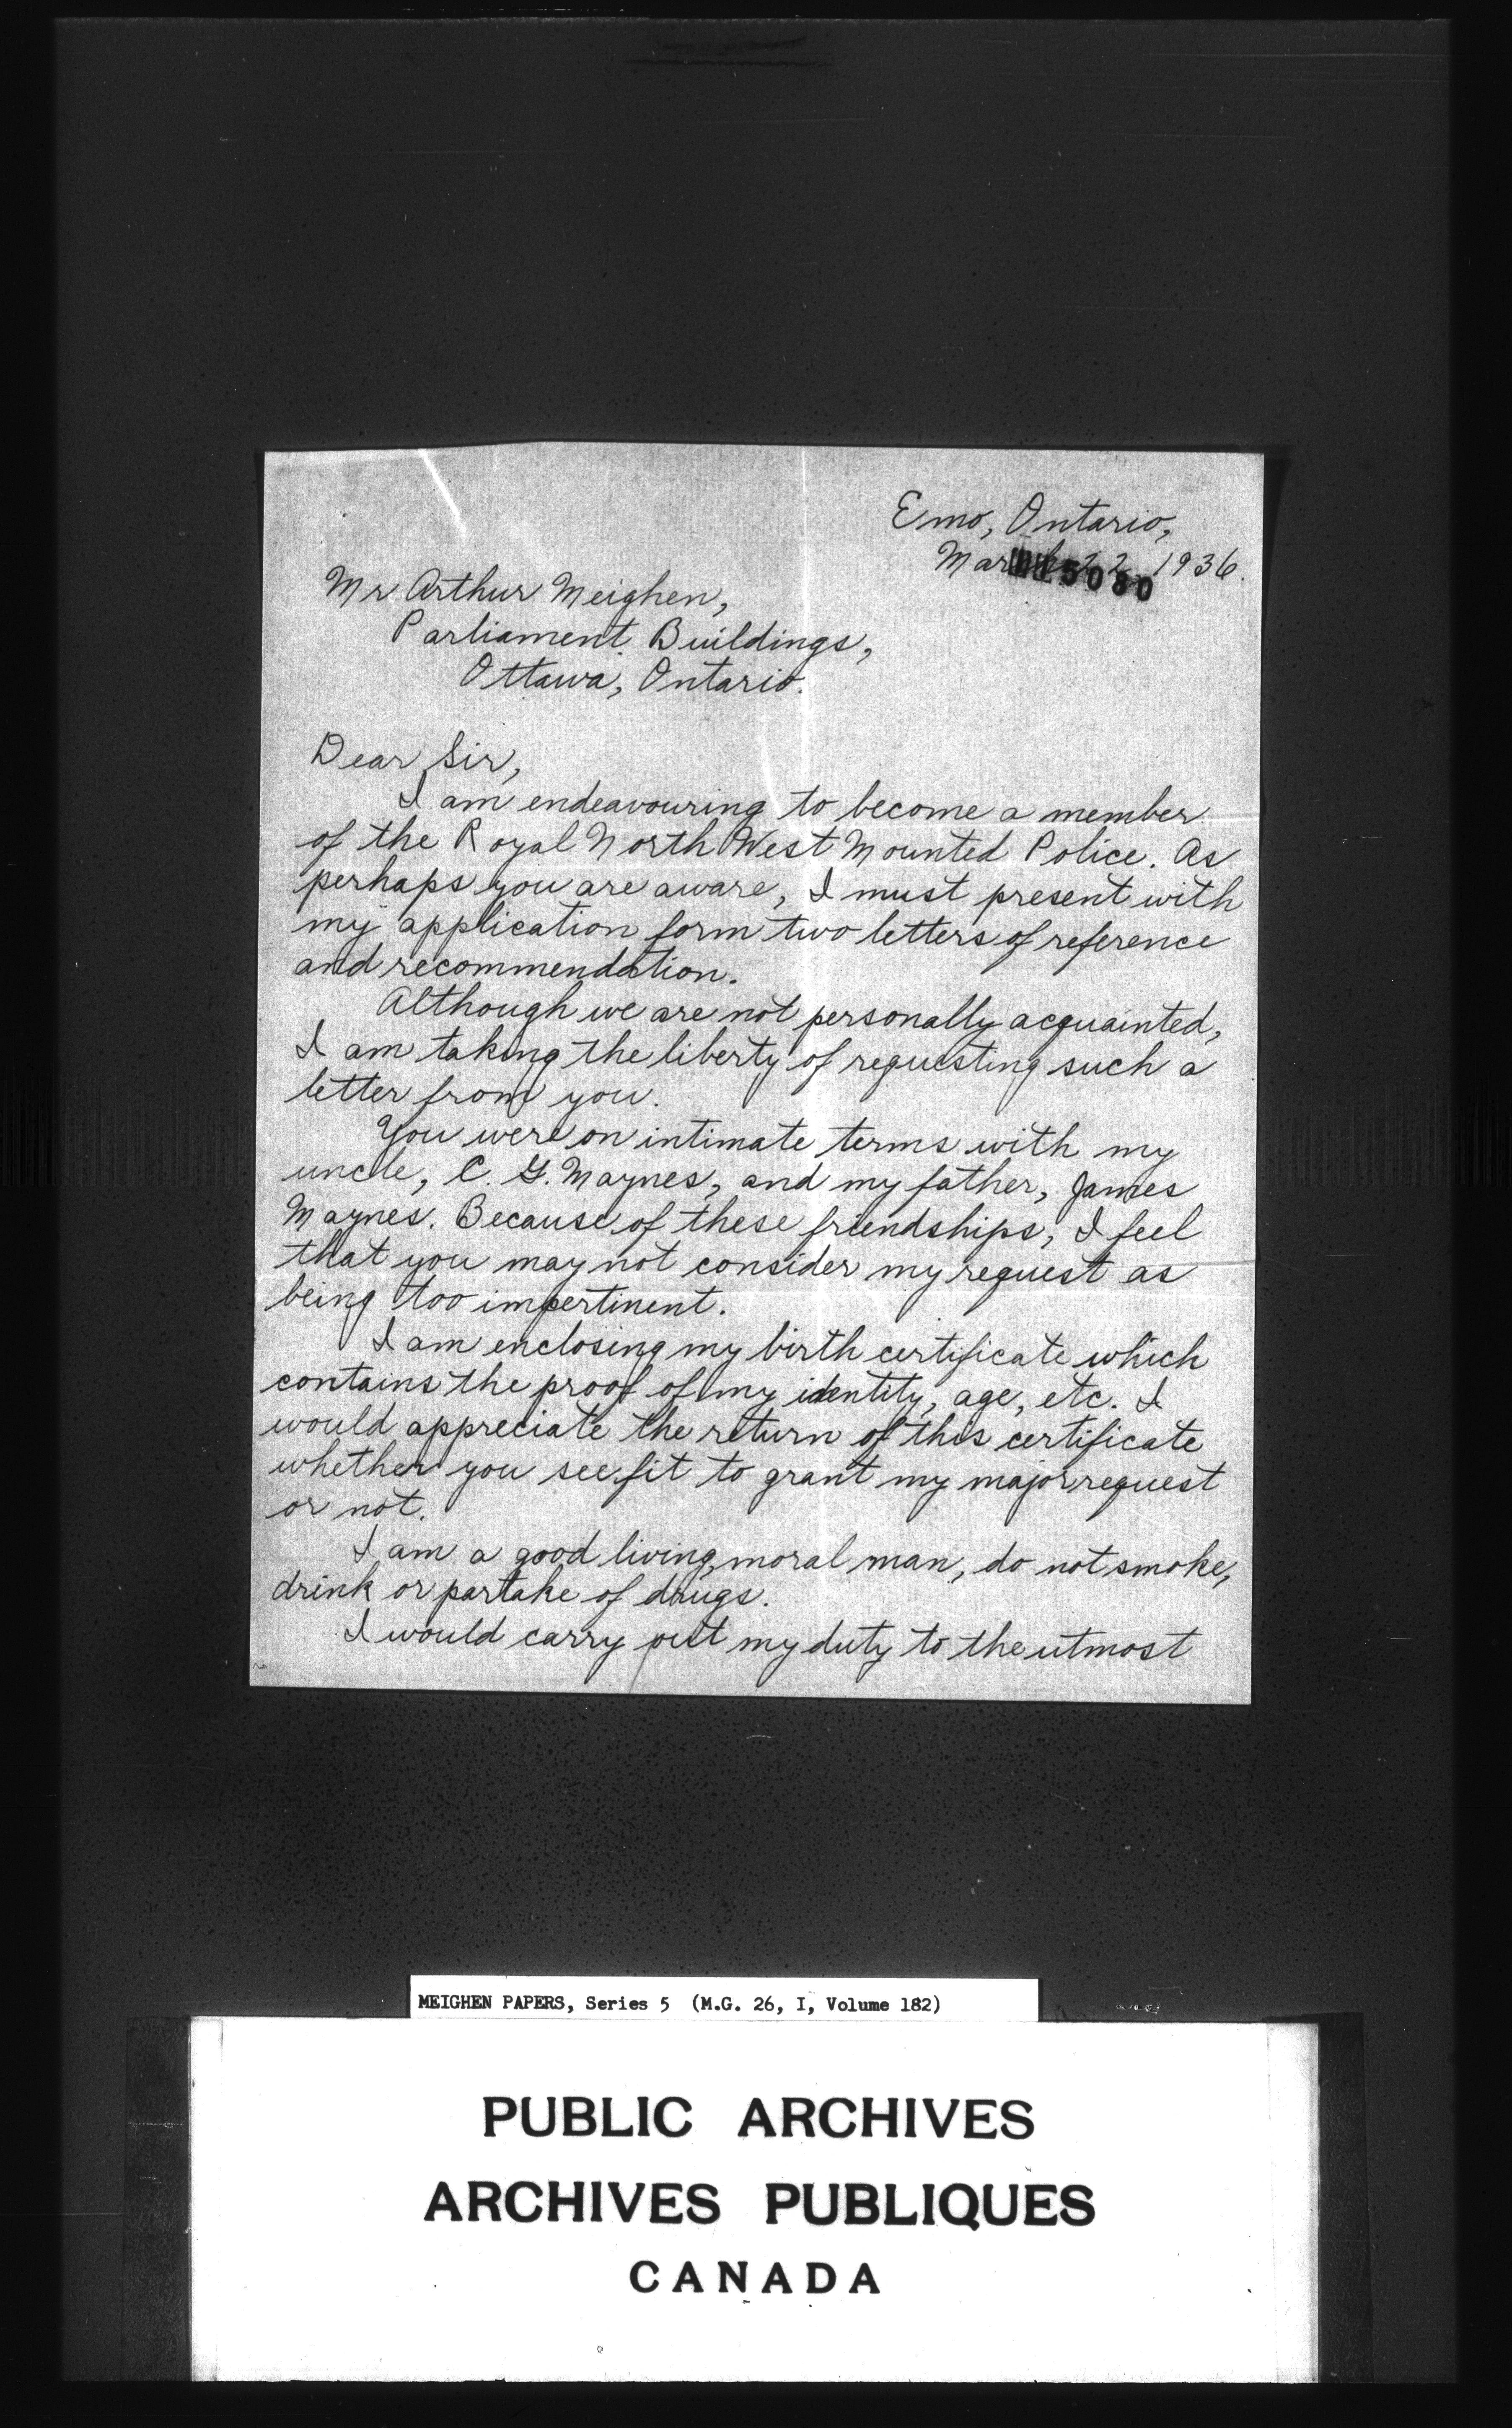 Emo, Ontario,
March 22 1936.
5080
Mr Arthur Meighen,
Parliament Buildings,
Ottawa, Ontario.
Dear Sir,
I am endeavouring to become a member
of the Royal North West Mounted Police. As
perhaps you are aware, I must present with
my application form two letters of reference
and recommendation.
Although we are not personally acquainted,
I am taking the liberty of requesting such a
letter from you.
You were on intimate terms with my
uncle, C. G. Maynes, and my father, James
Maynes. Because of these friendships, I feel
that you may not consider my request as
being too impertinent.
I am enclosing my birth certificate which
contains the proof of my identity, age, etc. I
would appreciate the return of this certificate
whether you see fit to grant my major request
or not.
I am a good living, moral man, do not smoke,
drink or partake of drugs.
I would carry out my duty to the utmost
MEIGHEN PAPERS, Series 5 (M.G. 26, I, Volume 182)
PUBLIC ARCHIVES
ARCHIVES PUBLIQUES
CANADA